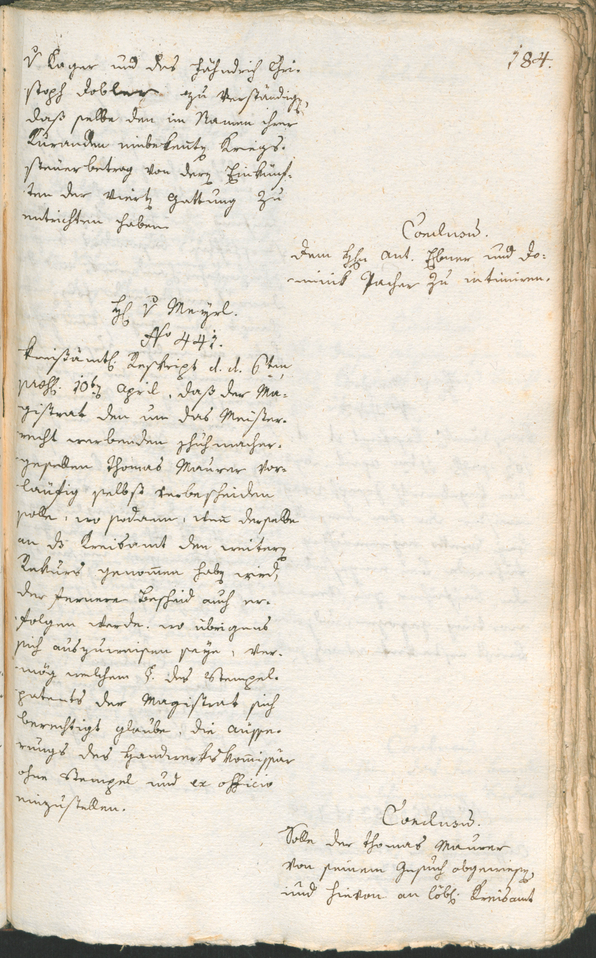 184.
v Lager und des Fähndrich Chri-
stoph Dobler zu verständigen,
daß selbe den im Namen ihrer
Kuranden einbekennten Kriegs-
steuerbetrag von deren Einkünf-
ten der vierten Gattung zu
entrichten haben
Conclusum.
Dem Hrn Ant. Ebner und Do-
minik Pacher zu intimiren.
H v Meyrl.
No 441.
Kreisamtl. Reskript d. d. 6ten
praes. 10ten April, daß der Ma-
gistrat den um das Meister-
recht werbenden Schuhmacher-
gesellen Thomas Maurer vor-
läufig selbst verbescheiden
solle, wo sodann, wenn derselbe
an ds Kreisamt den weitern
Rekurs genommen haben wird,
der fernere Bescheid auch er-
folgen werde. wo übrigens
sich auszuweisen seye, ver-
mög welchem §. des Stempel-
patents der Magistrat sich
berechtigt glaube, die Äusse-
rungs des Handwerkskommissär
ohne Stempel und ex officio
einzustellen.
Conclusum.
Solle der Thomas Maurer
von seinem Gesuch abgewiesen,
und hievon an löbl. Kreisamt